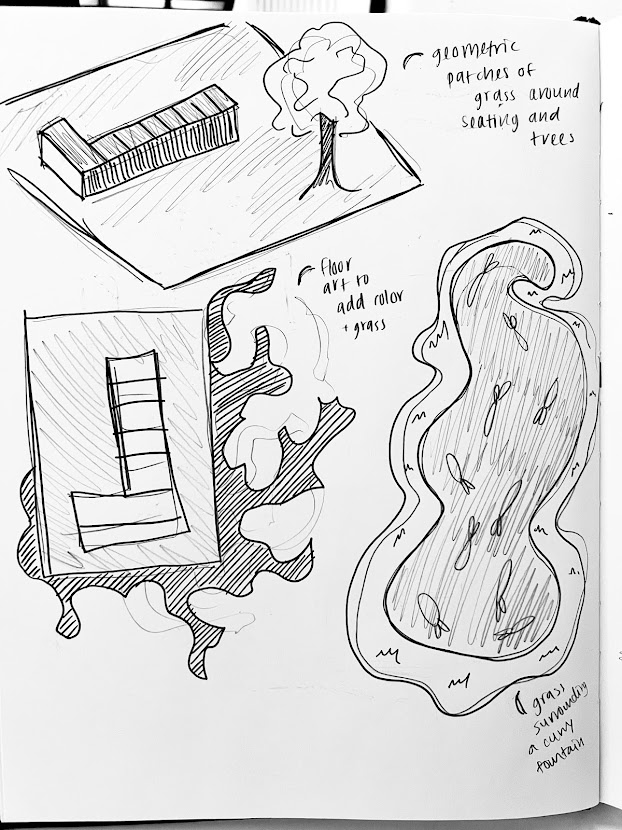 geometric
patches of
grass around
seating and
trees
floor
art to
add color
+ grass
grass
surrounding
a curvy
fountain